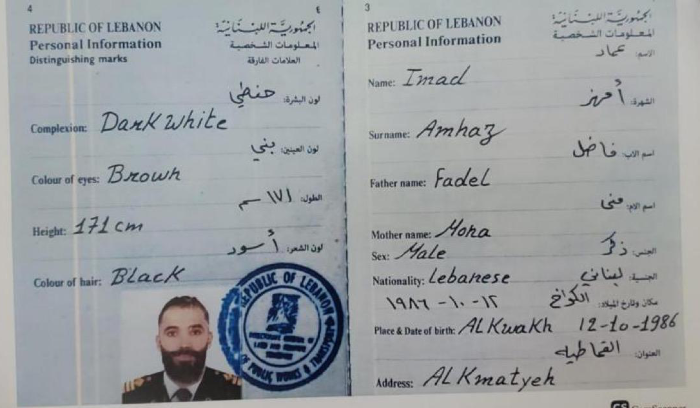 4 ٤
REPUBLIC OF LEBANON الجمهوريّة اللبنانيّة
Personal Information المعلومات الشخصية
Distinguishing marks العلامات الفارقة
لون البشرة: حنطي
Complexion: Dark White
لون العينين: بني
Colour of eyes: Brown
الطول: ١٧١ سم
Height: 171 cm
لون الشعر: أسود
Colour of hair: Black
REPUBLIC OF LEBANON
OF PUBLIC WORKS &
3
REPUBLIC OF LEBANON الجمهوريّة اللبنانيّة
Personal Information المعلومات الشخصية
الاسم: عماد
Name: Imad
الشهرة: أمهز
Surname: Amhaz
اسم الاب: فاضل
Father name: Fadel
اسم الام: منى
Mother name: Mona
الجنس: ذكر
Sex: Male
الجنسية: لبناني
Nationality: Lebanese
مكان وتاريخ الميلاد: الكواخ ١٢-١٠-١٩٨٦
Place & Date of birth: AL Kwakh 12-10-1986
العنوان: القماطيه
Address: AL Kmatyeh
CS CamScanner